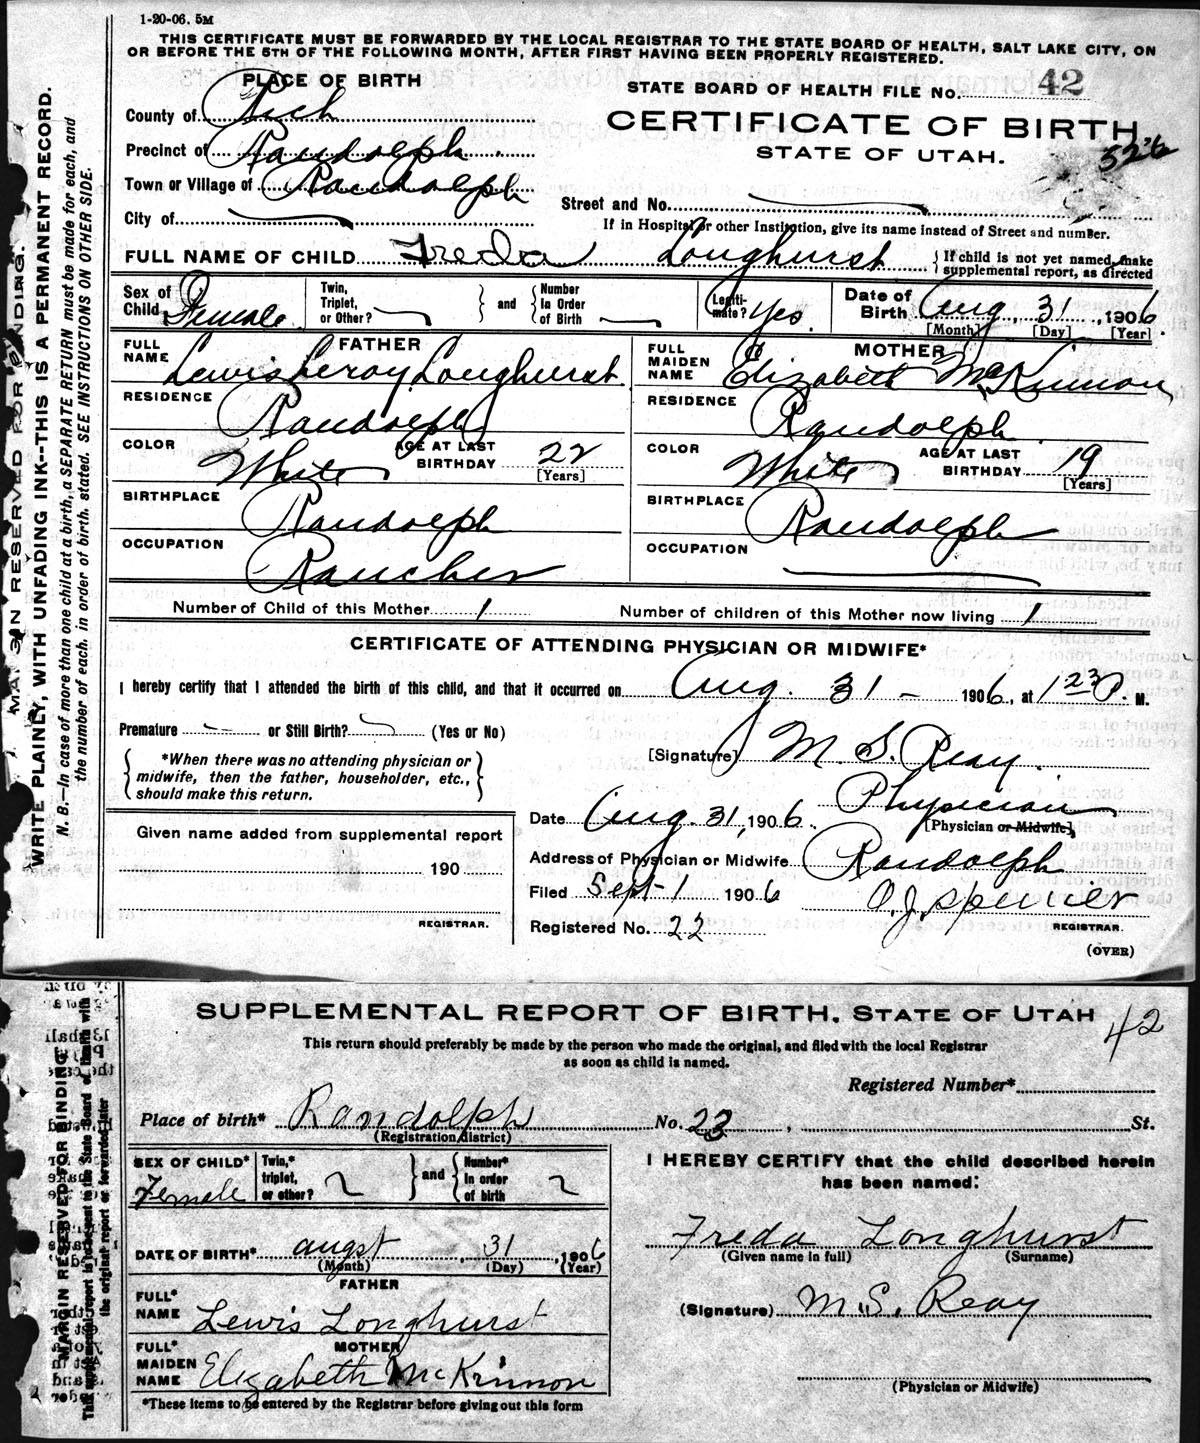 1-20-06. 5M
THIS CERTIFICATE MUST BE FORWARDED BY THE LOCAL REGISTRAR TO THE STATE BOARD OF HEALTH, SALT LAKE CITY, ON
OR BEFORE THE 5TH OF THE FOLLOWING MONTH, AFTER FIRST HAVING BEEN PROPERLY REGISTERED.
PLACE OF BIRTH
STATE BOARD OF HEALTH FILE NO. 42
County of Rich
CERTIFICATE OF BIRTH
Precinct of Randolph
STATE OF UTAH.
526
Town or Village of Randolph
Street and No.
City of
If in Hospital or other Institution, give its name instead of Street and number.
FULL NAME OF CHILD Freda Longhurst { If child is not yet named, make supplemental report, as directed
Sex of Child Female
Twin, Triplet, or Other?
} and {
Number In Order of Birth
Legiti- mate? Yes.
Date of Birth Aug. 31, 1906.
[Month] [Day] [Year]
FATHER
FULL NAME Lewis Leroy Longhurst
RESIDENCE Randolph
COLOR White
AGE AT LAST BIRTHDAY 22 [Years]
BIRTHPLACE Randolph
OCCUPATION Rancher
MOTHER
FULL MAIDEN NAME Elizabeth McKinnon
RESIDENCE Randolph.
COLOR White
AGE AT LAST BIRTHDAY 19 [Years]
BIRTHPLACE Randolph
OCCUPATION
Number of Child of this Mother 1 Number of children of this Mother now living 1
CERTIFICATE OF ATTENDING PHYSICIAN OR MIDWIFE*
I hereby certify that I attended the birth of this child, and that it occurred on Aug. 31 - 1906, at 1 23 P. M.
Premature — or Still Birth? (Yes or No)
*When there was no attending physician or
midwife, then the father, householder, etc.,
should make this return.
[Signature] M. S. Reay.
Physician
Date Aug. 31, 1906. [Physician or Midwife]
Address of Physician or Midwife Randolph
Filed Sept-1 1906 O. J. Spencer
REGISTRAR.
Registered No. 22
(OVER)
Given name added from supplemental report
190
REGISTRAR.
MARGIN RESERVED FOR BINDING.
WRITE PLAINLY, WITH UNFADING INK--THIS IS A PERMANENT RECORD.
N. B.—In case of more than one child at a birth, a SEPARATE RETURN must be made for each, and
the number of each, in order of birth, stated. SEE INSTRUCTIONS ON OTHER SIDE.
SUPPLEMENTAL REPORT OF BIRTH, STATE OF UTAH 42
This return should preferably be made by the person who made the original, and filed with the local Registrar
as soon as child is named.
Registered Number*
Place of birth* Randolph No. 23, St.
(Registration district)
SEX OF CHILD* Female
Twin,* triplet, or other?
} and {
Number* In order of birth
DATE OF BIRTH* augst 31, 1906
(Month) (Day) (Year)
FATHER
FULL* NAME Lewis Longhurst
MOTHER
FULL* MAIDEN NAME Elizabeth McKinnon
*These items to be entered by the Registrar before giving out this form
I HEREBY CERTIFY that the child described herein
has been named:
Freda Longhurst
(Given name in full) (Surname)
(Signature) M. S. Reay
(Physician or Midwife)
MARGIN RESERVED FOR BINDING